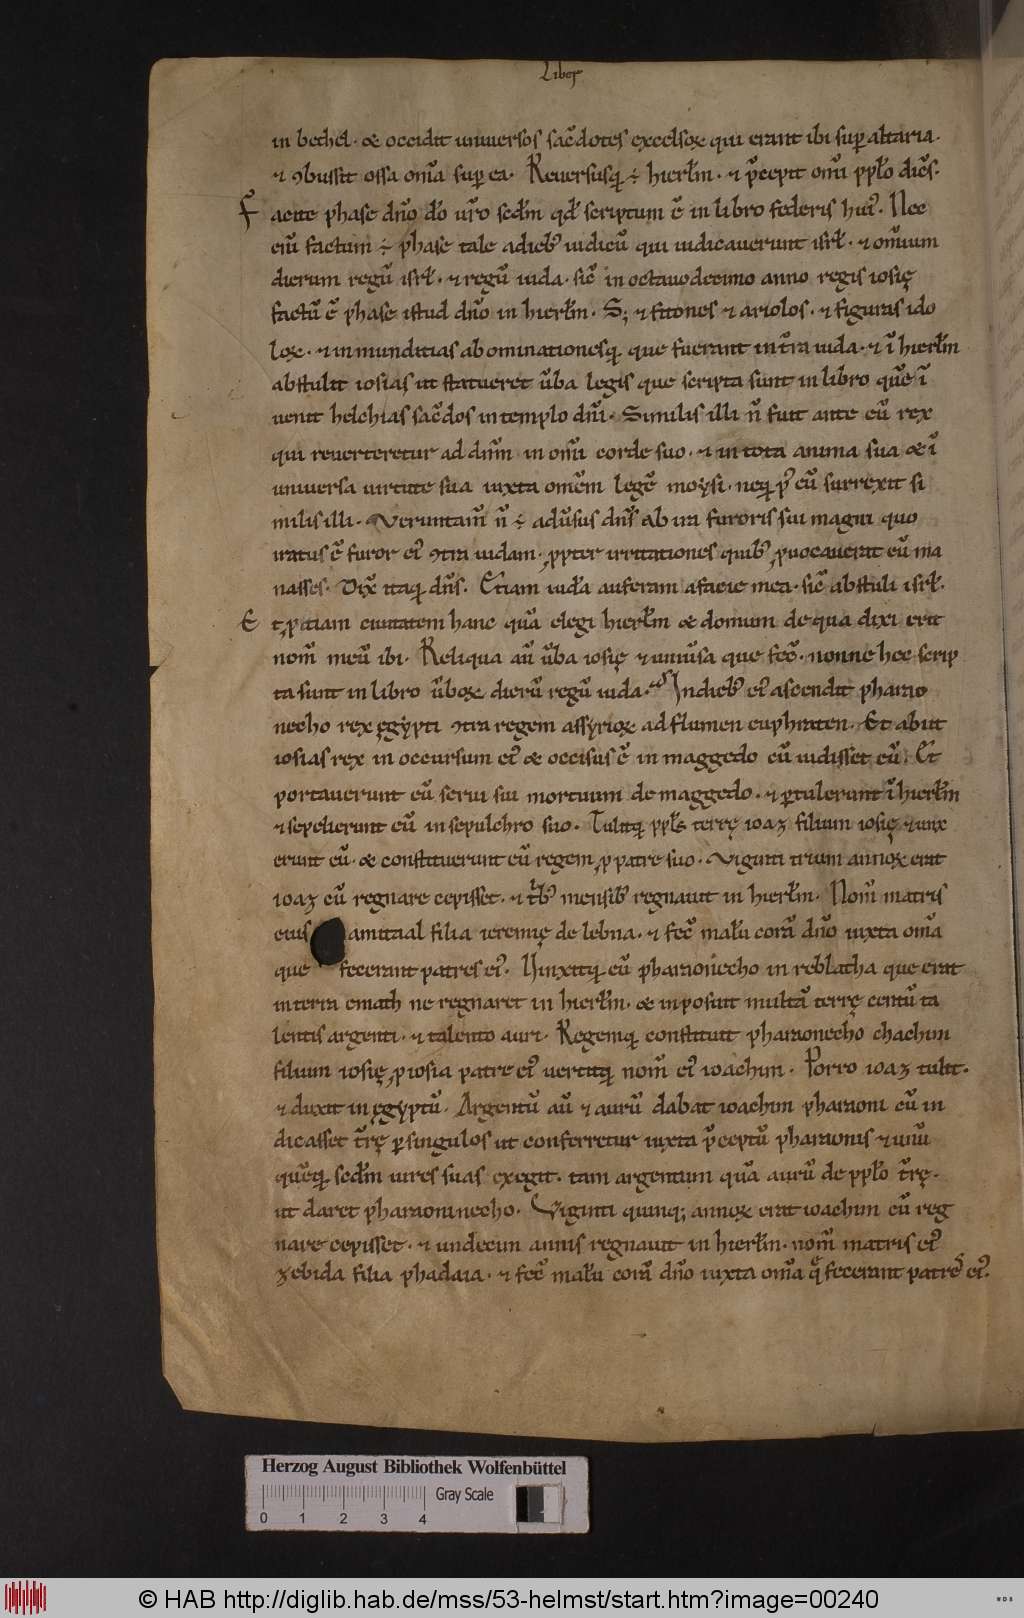 Liber
in bethel · & occidit uniuersos sac̄dotes excelsoꝝ qui erant ibi suꝑ altaria ·
⁊ ꝯbussit ossa om̄a suꝑ ea · Reuersusq; ÷ hierłm · ⁊ p̄cepit om̄i ppło dicēs ·
F acite phase dn̄o d̄o ur̄o scdm̄ qđ scriptum ē in libro federis hui᷒ · Nec
eni̅ factum ÷ phase tale a dieb᷒ iudicū qui iudicauerunt isrł · ⁊ om̄ium
dierum regū isrł · ⁊ regū iuda · sic̄ in octauodecimo anno regis iosię
factū ē phase istud dn̄o in hierłm · S; ⁊ fitones ⁊ ariolos · ⁊ figuras ido
loꝝ · ⁊ inmunditias abominationesq; que fuerant in tr̄a iuda · ⁊ ī hierłm
abstulit iosias ut statueret ūba legis que scripta sunt in libro quē ī
uenit helchias sac̄dos in templo dn̄i · Similis illi n̄ fuit ante eū rex
qui reuerteretur ad dn̄m in om̄i corde suo · ⁊ in tota anima sua & ī
uniuersa uirtute sua iuxta omēm legē moẏsi · neq; p᷒ eū surrexit si
milis illi · Ueruntam̄ n̄ ÷ aduersus dn̄s ab ira furoris sui magni quo
iratus ē furor ei᷒ ꝯtra iudam · ꝓpter irritationes quib᷒ ꝓuocauerat eū ma
nasses · Dix̄ itaq; dn̄s · Etiam iudā auferam a facie mea · sic̄ abstuli isrł ·
E t ꝓitiam ciuitatem hanc quā elegi hierłm & domum de qua dixi erit
nom̄ meū ibi · Reliqua aū ūba iosię ⁊ uniūsa que fec̄ · nonne hec scrip
ta sunt in libro ūboꝝ dierū regū iuda · In dieb᷒ ei᷒ ascendit pharao
necho rex ęgẏpti ꝯtra regem assẏrioꝝ ad flumen euphraten · Et abiit
iosias rex in occursum ei᷒ & occisus ē in maggedo cū uidisset eū · Et
portauerunt eū serui sui mortuum de maggedo · ⁊ ꝑtulerunt ī hierłm
⁊ sepelierunt eū in sepulchro suo · Tulitq; ppłs terrę ioaz filium iosię ⁊ unx
erunt eū · & constituerunt eū regem ꝓ patre suo · Uiginti trium annoꝝ erat
ioaz cū regnare cepisset · ⁊ trib᷒ mensib᷒ regnauit in hierłm · Nom̄ matris
eius amitaal filia ieremię de lebna · ⁊ fec̄ malū corā dn̄o iuxta om̄a
que fecerant patres ei᷒ · Uinxitq; eū pharaonecho in reblatha que erat
in terra emath ne regnaret in hierłm · & inposuit multā terrę centū ta
lentis argenti · ⁊ talento auri · Regemq; constituit pharaonecho eliachim
filium iosię ꝓ iosia patre ei᷒ uertitq; nom̄ ei᷒ ioachim · Porro ioaz tulit ·
⁊ duxit in ęgẏptū · Argentū aū ⁊ aurū dabat ioachim pharaoni cū in
dicasset tr̄ę ꝑ singulos ut conferretur iuxta p̄ceptū pharaonis ⁊ unū
quēq; scdm̄ uires suas exegit · tam argentum quā aurū de ppło tr̄ę ·
ut daret pharaoninecho · Uiginti quinq; annoꝝ erat ioachim cū reg
nare cepisset · ⁊ undecim annis regnauit in hierłm · nom̄ matris ei᷒
zebida filia phadaia · ⁊ fec̄ malū corā dn̄o iuxta om̄a q̄ fecerant patres ei᷒ ·
Herzog August Bibliothek Wolfenbüttel
Gray Scale
0 1 2 3 4
© HAB http://diglib.hab.de/mss/53-helmst/start.htm?image=00240